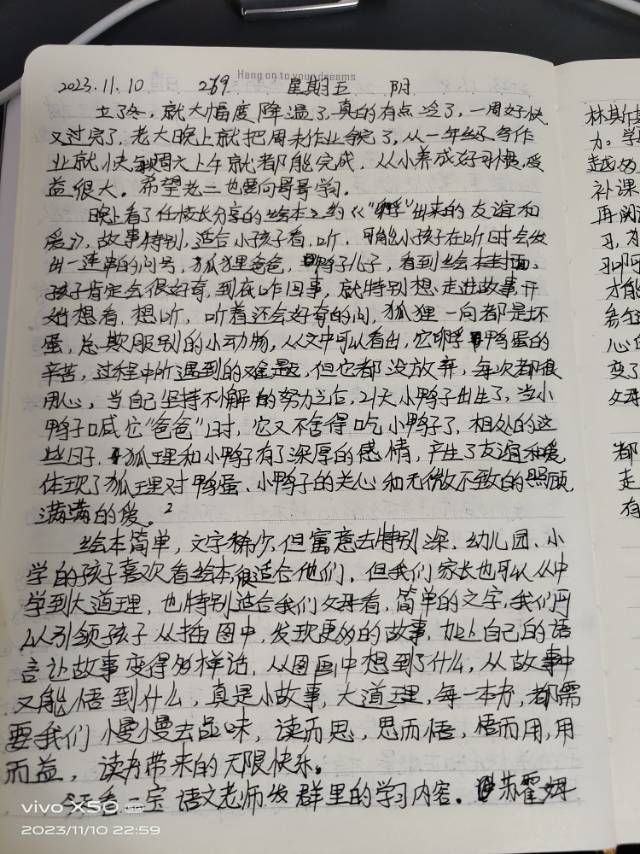 Hang on to your dreams
2023.11.10 269 星期五 阴
立了冬,就大幅度降温了,真的有点冷了,一周好快
又过完了,老大晚上就把周末作业写完了,从一年级写作
业就快每周六上午就都能完成,从小养成好习惯,受
益很大。希望老二也要向哥哥学习。
晚上看了任校长分享的绘本之约《“孵”出来的友谊和
爱》,故事特别适合小孩子看、听,可能小孩子在听时会发
出一连串的问号,狐狸爸爸,鸭子儿子,看到绘本封面,
孩子肯定会很好奇,到底咋回事,就特别想走进故事,开
始想看,想听,听着还会好奇的问,狐狸一向都是坏
蛋,总欺服别的小动物,从文中可以看出,它孵鸭蛋的
辛苦,过程中所遇到的难题,但它都没放弃,每次都很
用心,当自己坚持不懈的努力之后,21天小鸭子出生了,当小
鸭子喊它“爸爸”时,它又不舍得吃小鸭子了,相处的这
些日子,狐理和小鸭子有了深厚的感情,产生了友谊和爱
体现了狐理对鸭蛋、小鸭子的关心和无微不致的照顾,
满满的爱。
绘本简单,文字稀少,但寓意去特别深,幼儿园、小
学的孩子喜欢看绘本很适合他们,但我们家长也可以从中
学到大道理,也特别适合我们父母看,简单的文字,我们可
以引领孩子从插图中,发现更多的故事,加上自己的语
言让故事变得多样话,从图画中想到了什么,从故事中
又能悟到什么,真是小故事,大道理,每一本书,都需
要我们慢慢去品味,读而思,思而悟,悟而用,用
而益,读书带来的无限快乐。
看一宝语文老师发群里的学习内容。苏霍姆
林斯
力。学
越多
补课
再阅
习,
才能
心
变了
父母
都
走
有
vivo X50
2023/11/10 22:59